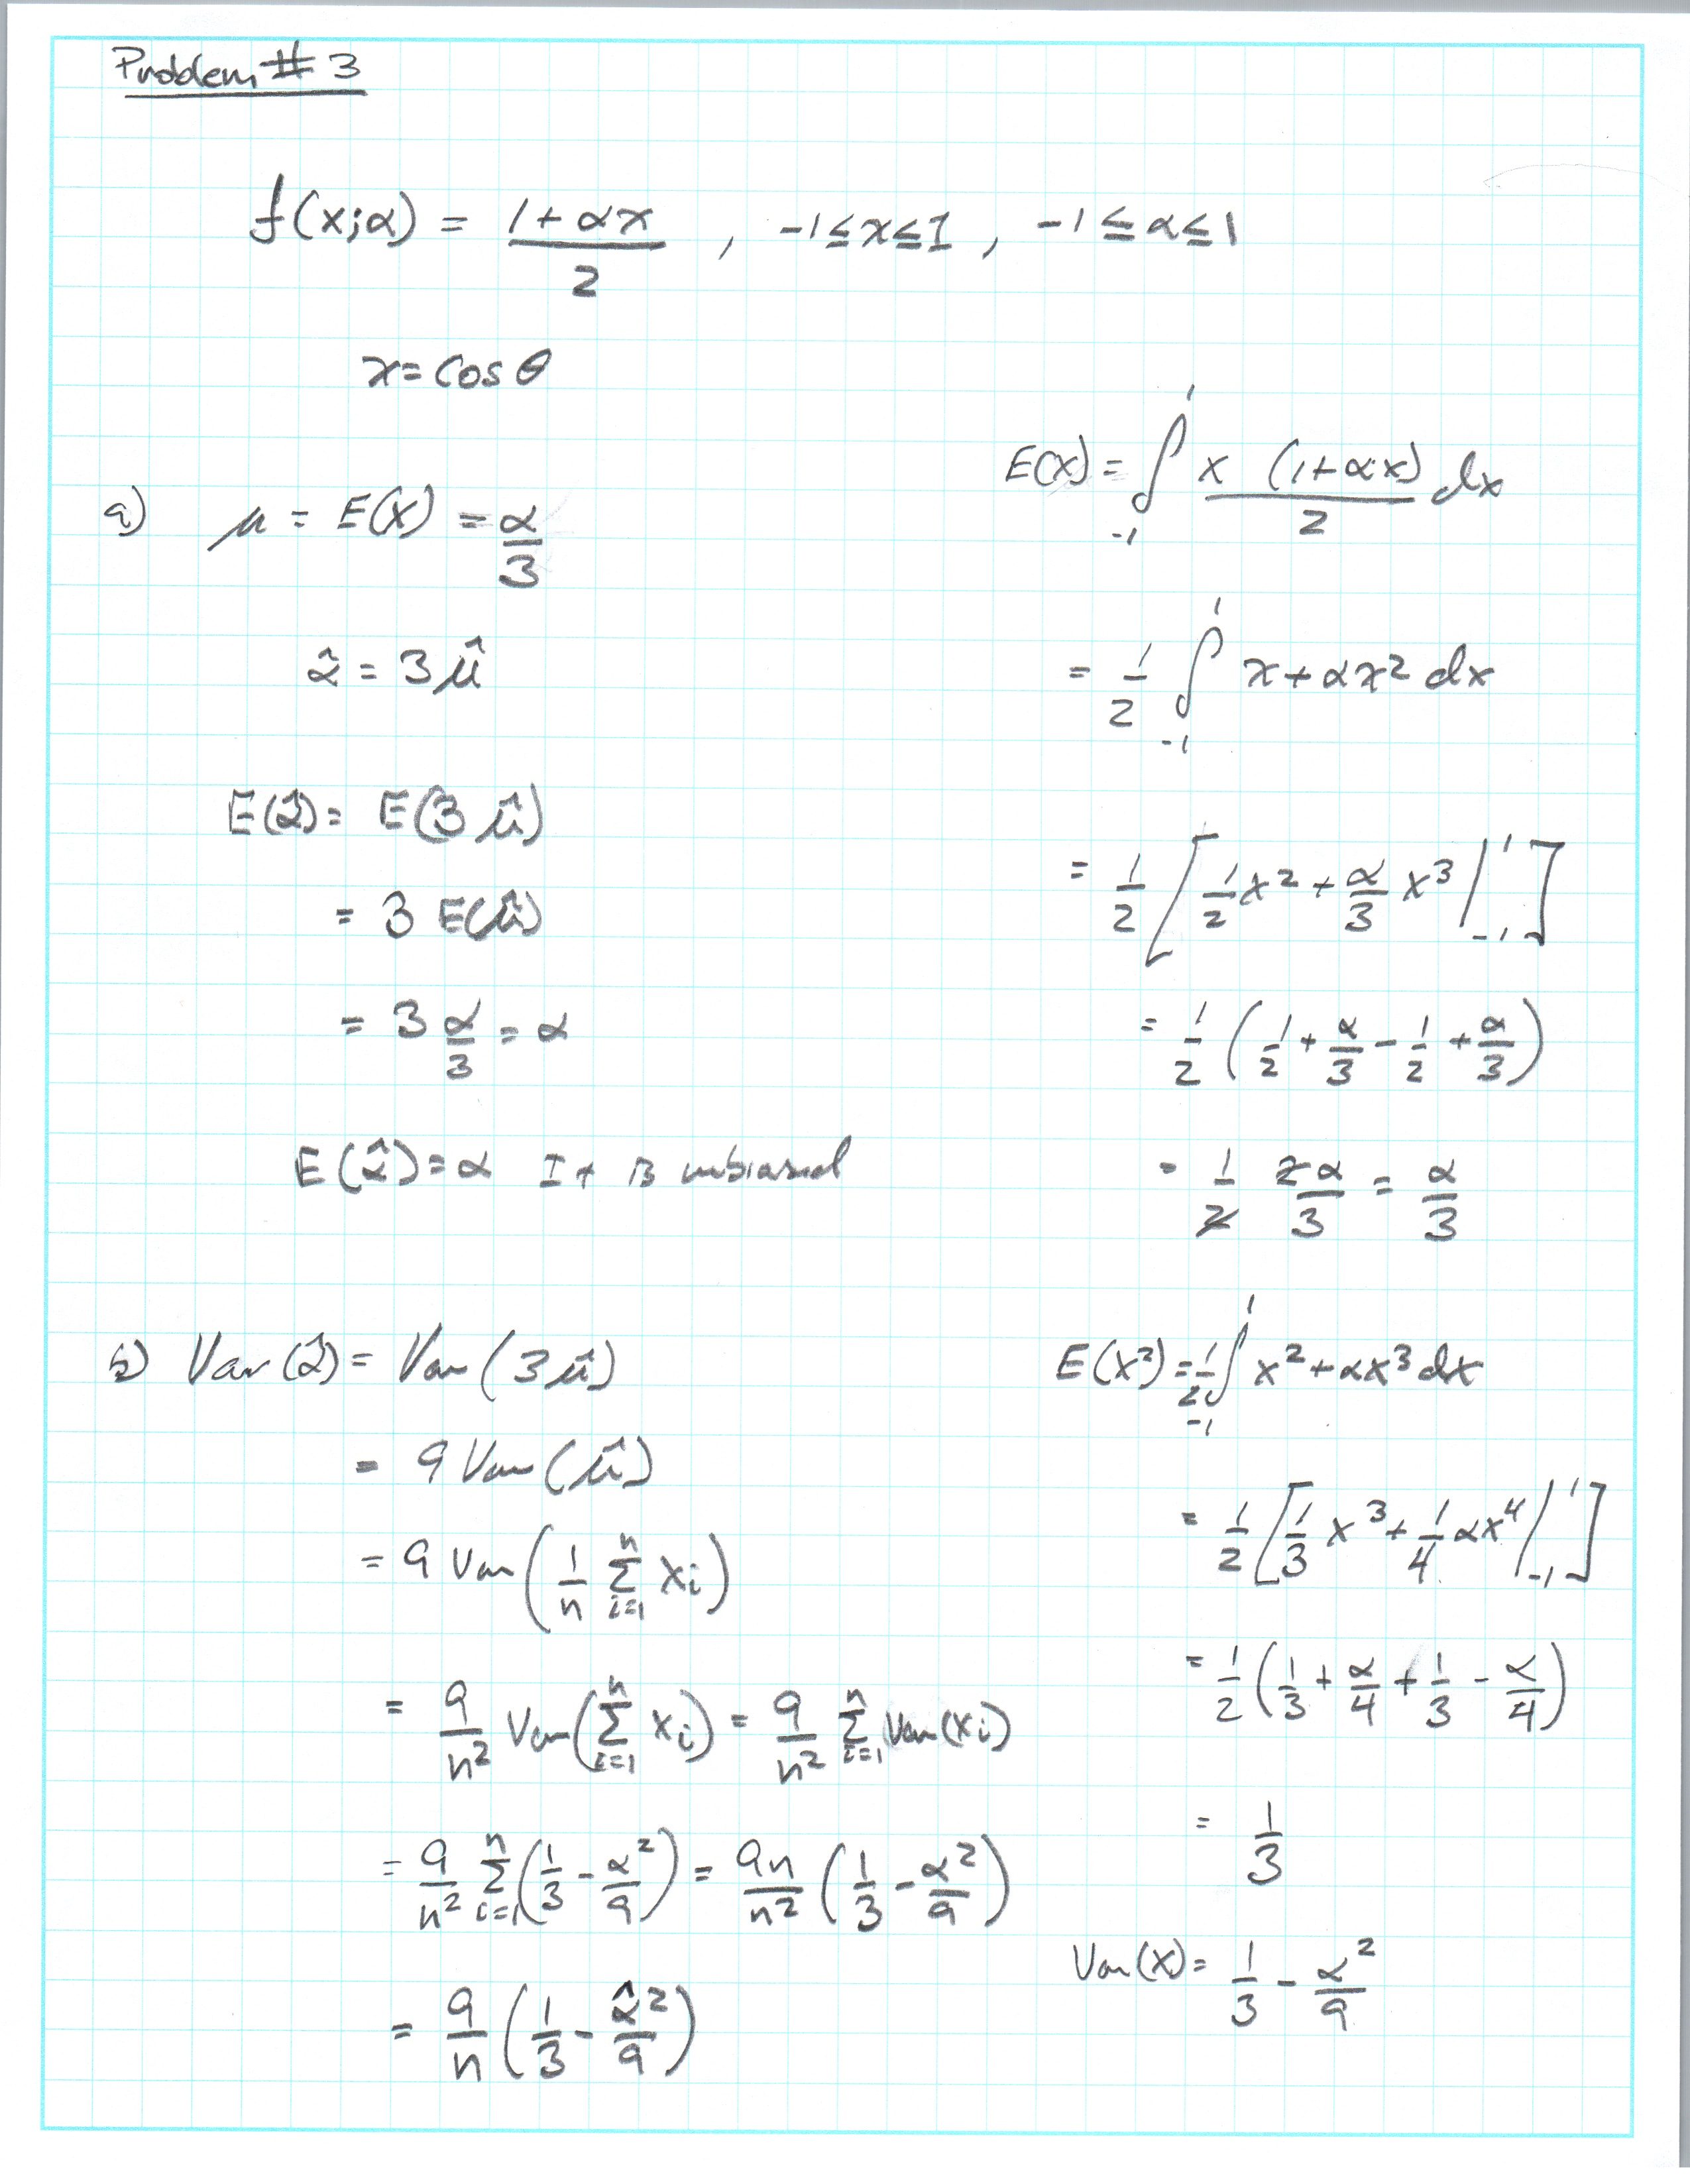 Problem # 3
f(x;α) = (1+αx)/2 , -1≤x≤1 , -1≤α≤1
x = cos θ
a) μ = E(X) = α/3
α̂ = 3μ̂
E(α̂) = E(3μ̂)
= 3 E(μ̂)
= 3 α/3 = α
E(α̂) = α It is unbiased
E(X) = ∫_{-1}^{1} x (1+αx)/2 dx
= 1/2 ∫_{-1}^{1} x+αx² dx
= 1/2 [1/2 x² + α/3 x³ |_{-1}^{1}]
= 1/2 (1/2 + α/3 - 1/2 + α/3)
= 1/2 2α/3 = α/3
b) Var(α̂) = Var(3μ̂)
= 9 Var(μ̂)
= 9 Var(1/n Σ_{i=1}^{n} xi)
= 9/n² Var(Σ_{i=1}^{n} xi) = 9/n² Σ_{i=1}^{n} Var(xi)
= 9/n² Σ_{i=1}^{n} (1/3 - α²/9) = 9n/n² (1/3 - α²/9)
= 9/n (1/3 - α̂²/9)
E(X²) = 1/2 ∫_{-1}^{1} x²+αx³ dx
= 1/2 [1/3 x³ + 1/4 αx⁴ |_{-1}^{1}]
= 1/2 (1/3 + α/4 + 1/3 - α/4)
= 1/3
Var(X) = 1/3 - α²/9